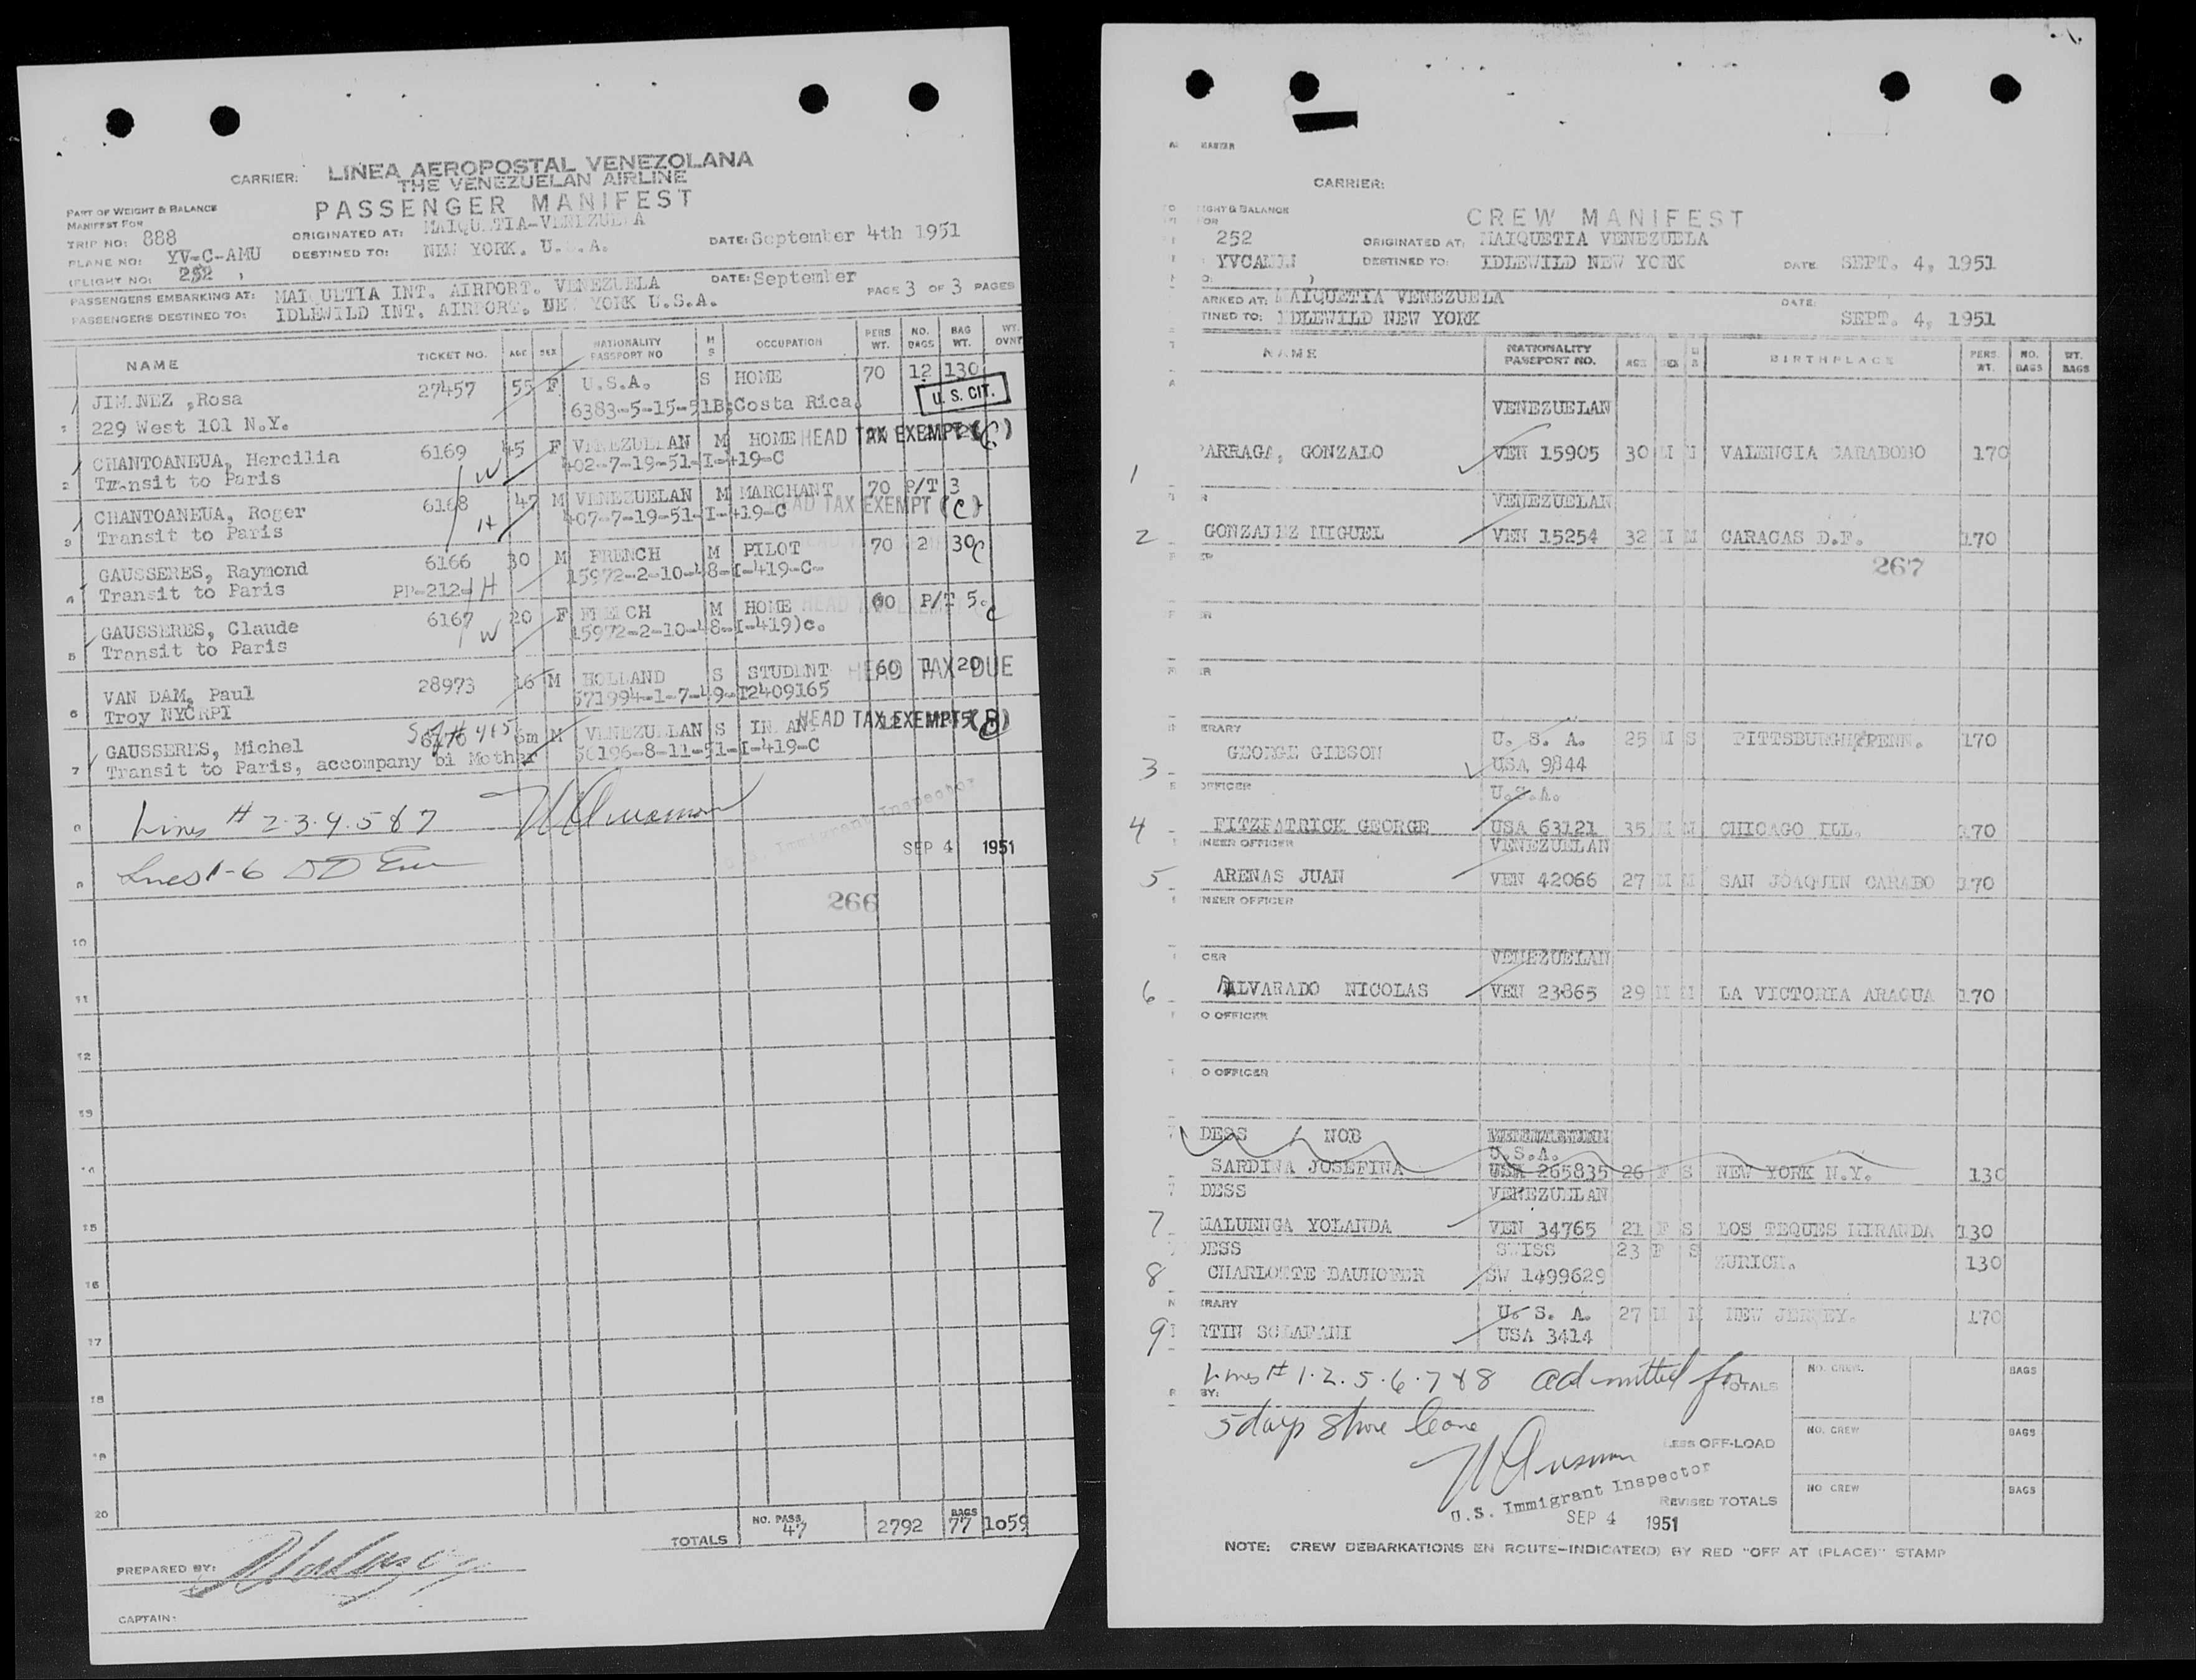 CARRIER: LINEA AEROPOSTAL VENEZOLANA
THE VENEZUELAN AIRLINE
PASSENGER MANIFEST
PART OF WEIGHT & BALANCE
MANIFEST FOR
TRIP NO: 888
ORIGINATED AT: MAIQUETIA-VENEZUELA
PLANE NO: YV-C-AMU
DESTINED TO: NEW YORK. U.S.A.
DATE: September 4th 1951
(FLIGHT NO: 252 )
PASSENGERS EMBARKING AT: MAIQUETIA INT. AIRPORT. VENEZUELA
DATE: September
PAGE 3 OF 3 PAGES
PASSENGERS DESTINED TO: IDLEWILD INT. AIRPORT. YORK U.S.A.
NAME TICKET NO. AGE SEX NATIONALITY PASSPORT NO M S OCCUPATION PERS WT. NO. BAGS BAG WT. WT. OVNT
1 JIM.NEZ ,Rosa 27457 55 F U.S.A. S HOME 70 12 130
229 West 101 N.Y. 6383-5-15-51B;Costa Rica.
U. S. CIT.
2 CHANTOANEUA, Hercilia 6169 45 F VENEZUELAN M HOME HEAD TAX EXEMPT (C)
Transit to Paris W 402-7-19-51-I-419-C
3 CHANTOANEUA, Roger 6168 47 M VENEZUELAN M MARCHANT 70 P/T 3
Transit to Paris H 407-7-19-51-I-419-C HEAD TAX EXEMPT (C)
4 GAUSSERES, Raymond 6166 30 M FRENCH M PILOT 70 2 30 C
Transit to Paris PP-212- H 15972-2-10-48-I-419-C-
5 GAUSSERES, Claude 6167 20 F FRENCH M HOME 60 P/T 5. C
Transit to Paris W 15972-2-10-48-I-419)c.
6 VAN DAM, Paul 28973 16 M HOLLAND S STUDENT HEAD TAX DUE 60 20
Troy NYCRPI 571994-1-7-49-I2409165
7 GAUSSERES, Michel 6170 6m M VENEZUELAN S HEAD TAX EXEMPT (B)
Transit to Paris, accompany bi Mother 56196-8-11-51-I-419-C
8 Lines # 2.3.4.5 & 7
Immigrant Inspector
SEP 4 1951
9 Lines 1-6
266
10
11
12
13
14
15
16
17
18
19
20
TOTALS NO. PASS. 47 2792 BAGS 77 1059
PREPARED BY:
CAPTAIN:
CARRIER:
IGHT & BALANCE
FOR
CREW MANIFEST
252
ORIGINATED AT: MAIQUETIA VENEZUELA
DESTINED TO: IDLEWILD NEW YORK
DATE SEPT. 4, 1951
ARKED AT: MAIQUETIA VENEZUELA
DATE:
TINED TO: IDLEWILD NEW YORK
SEPT. 4, 1951
NAME NATIONALITY PASSPORT NO. AGE SEX M S BIRTHPLACE PERS. WT. NO. BAGS WT. BAGS
VENEZUELAN
1 PARRAGA, GONZALO VEN 15905 30 M M VALENCIA CARABOBO 170
VENEZUELAN
2 GONZALEZ MIGUEL VEN 15254 32 M M CARACAS D.F. 170
267
ERARY U. S. A. 25 M S PITTSBURGH PENN. 170
3 GEORGE GIBSON USA 9844
OFFICER U.S.A.
4 FITZPATRICK GEORGE USA 63121 35 M M CHICAGO ILL. 170
NEER OFFICER VENEZUELAN
5 ARENAS JUAN VEN 42066 27 M M SAN JOAQUIN CARABO 170
NEER OFFICER
CER VENEZUELAN
6 ALVARADO NICOLAS VEN 23865 29 M M LA VICTORIA ARAGUA 170
O OFFICER
O OFFICER
DESS / NOB
U.S.A.
SARDINA JOSEFINA USA 265835 26 F S NEW YORK N.Y. 130
DESS VENEZUELAN
7 MALUENGA YOLANDA VEN 34765 21 F S LOS TEQUES MIRANDA 130
DESS SWISS 23 F S ZURICH. 130
8 CHARLOTTE BAUHOFER SW 1499629
ERARY U. S. A. 27 M M NEW JERSEY. 170
9 RTIN SCLAFANI USA 3414
Lines # 1.2.5.6.7 & 8 admitted for
5 days shore leave
BY:
TOTALS NO. CREW. BAGS
LESS OFF-LOAD NO. CREW BAGS
REVISED TOTALS NO CREW BAGS
U.S. Immigrant Inspector
SEP 4 1951
NOTE: CREW DEBARKATIONS EN ROUTE-INDICATE(D) BY RED "OFF AT (PLACE)" STAMP